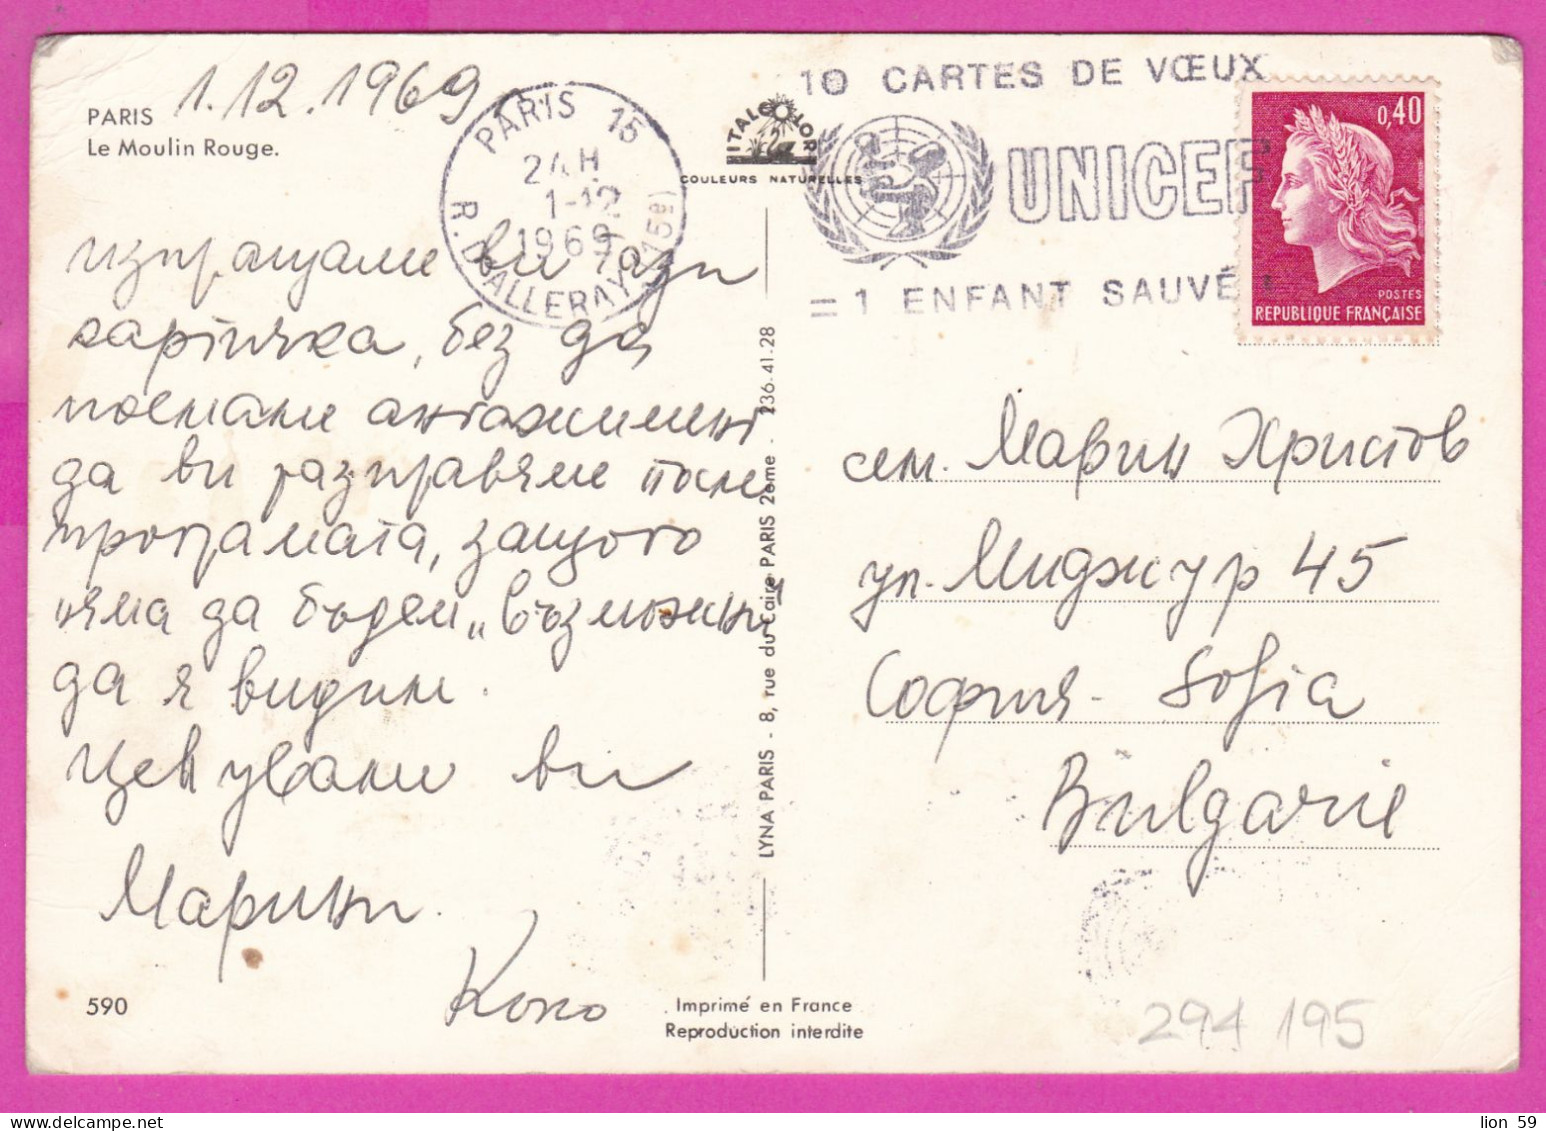 1.12.1969
PARIS
Le Moulin Rouge.
PARIS 15
24H
1-12
1969
R. D'ALLERAY (15e)
ITALCOLOR
COULEURS NATURELLES
10 CARTES DE VŒUX
UNICEF
= 1 ENFANT SAUVÉ !
0,40
POSTES
REPUBLIQUE FRANÇAISE
изпращаме ви тази
картичка, без да
поемаме ангажимент
да ви разправяме после
програмата, защото
няма да бъдем „възможни"
да я видим.
Целуваме ви
Марини.
Коко
590
LYNA PARIS - 8, rue du Caire PARIS 2ème - 236.41.28
Imprimé en France
Reproduction interdite
сем. Марин Христов
ул. Миджур 45
София - Sofia
Bulgarie
294 195
lion 59